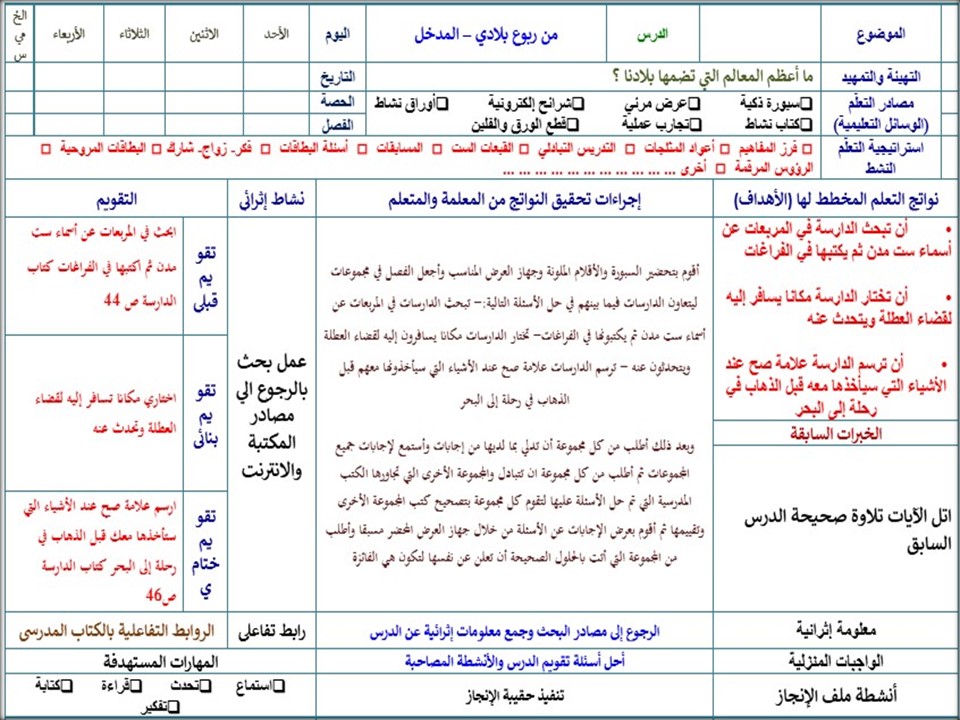 الموضوع
الدرس
من ربوع بلادي – المدخل
اليوم
الأحد
الاثنين
الثلاثاء
الأربعاء
الخ
مي
س
التهيئة والتمهيد
ما أعظم المعالم التي تضمها بلادنا ؟
التاريخ
مصادر التعلّم
(الوسائل التعليمية)
❑سبورة ذكية ❑عرض مرئي ❑شرائح إلكترونية ❑أوراق نشاط
❑كتاب نشاط ❑تجارب عملية ❑قطع الورق والفلين
الحصة
الفصل
استراتيجية التعلّم
النشط
□ فرز المفاهيم □ أعواد المثلجات □ التدريس التبادلي □ القبعات الست □ المسابقات □ أسئلة البطاقات □ فكر- زواج- شارك □ البطاقات المروحية □
الرؤوس المرقمة □ أخرى ... ... ... ... ... ... ... ... ... ... ...
نواتج التعلم المخطط لها (الأهداف)
إجراءات تحقيق النواتج من المعلمة والمتعلم
نشاط إثرائى
التقويم
• أن تبحث الدارسة في المربعات عن
أسماء ست مدن ثم يكتبها في الفراغات
• أن تختار الدارسة مكانا يسافر إليه
لقضاء العطلة ويتحدث عنه
• أن ترسم الدارسة علامة صح عند
الأشياء التي سيأخذها معه قبل الذهاب في
رحلة إلى البحر
الخبرات السابقة
اتل الآيات تلاوة صحيحة الدرس
السابق
أقوم بتحضير السبورة والأقلام الملونة وجهاز العرض المناسب وأجعل الفصل في مجموعات
ليتعاون الدارسات فيما بينهم في حل الأسئلة التالية:– تبحث الدارسات في المربعات عن
أسماء ست مدن ثم يكتبونها في الفراغات– تختار الدارسات مكانا يسافرون إليه لقضاء العطلة
ويتحدثون عنه – ترسم الدارسات علامة صح عند الأشياء التي سيأخذونها معهم قبل
الذهاب في رحلة إلى البحر
وبعد ذلك أطلب من كل مجموعة أن تدلي بما لديها من إجابات وأستمع لإجابات جميع
المجموعات ثم أطلب من كل مجموعة ان تتبادل والمجموعة الأخرى التي تجاورها الكتب
المدرسية التي تم حل الأسئلة عليها لتقوم كل مجموعة بتصحيح كتب المجموعة الأخرى
وتقييمها ثم أقوم بعرض الإجابات عن الأسئلة من خلال جهاز العرض المحضر مسبقا وأطلب
من المجموعة التي أتت بالحلول الصحيحة أن تعلن عن نفسها لتكون هي الفائزة
عمل بحث
بالرجوع الي
مصادر
المكتبة
والانترنت
تقو
يم
قبلى
ابحث في المربعات عن أسماء ست
مدن ثم اكتبها في الفراغات كتاب
الدارسة ص 44
تقو
يم
بنائى
اختاري مكانا تسافر إليه لقضاء
العطلة وتحدث عنه
تقو
يم
ختام
ي
ارسم علامة صح عند الأشياء التي
ستأخذها معك قبل الذهاب في
رحلة إلى البحر كتاب الدارسة
ص46
معلومة إثرانية
الرجوع إلى مصادر البحث وجمع معلومات إثرائية عن الدرس
رابط تفاعلى
الروابط التفاعلية بالكتاب المدرسى
الواجبات المنزلية
أحل أسئلة تقويم الدرس والأنشطة المصاحبة
المهارات المستهدفة
أنشطة ملف الإنجاز
تنفيذ حقيبة الإنجاز
❑استماع ❑تحدث ❑قراءة ❑كتابة
❑تفكير